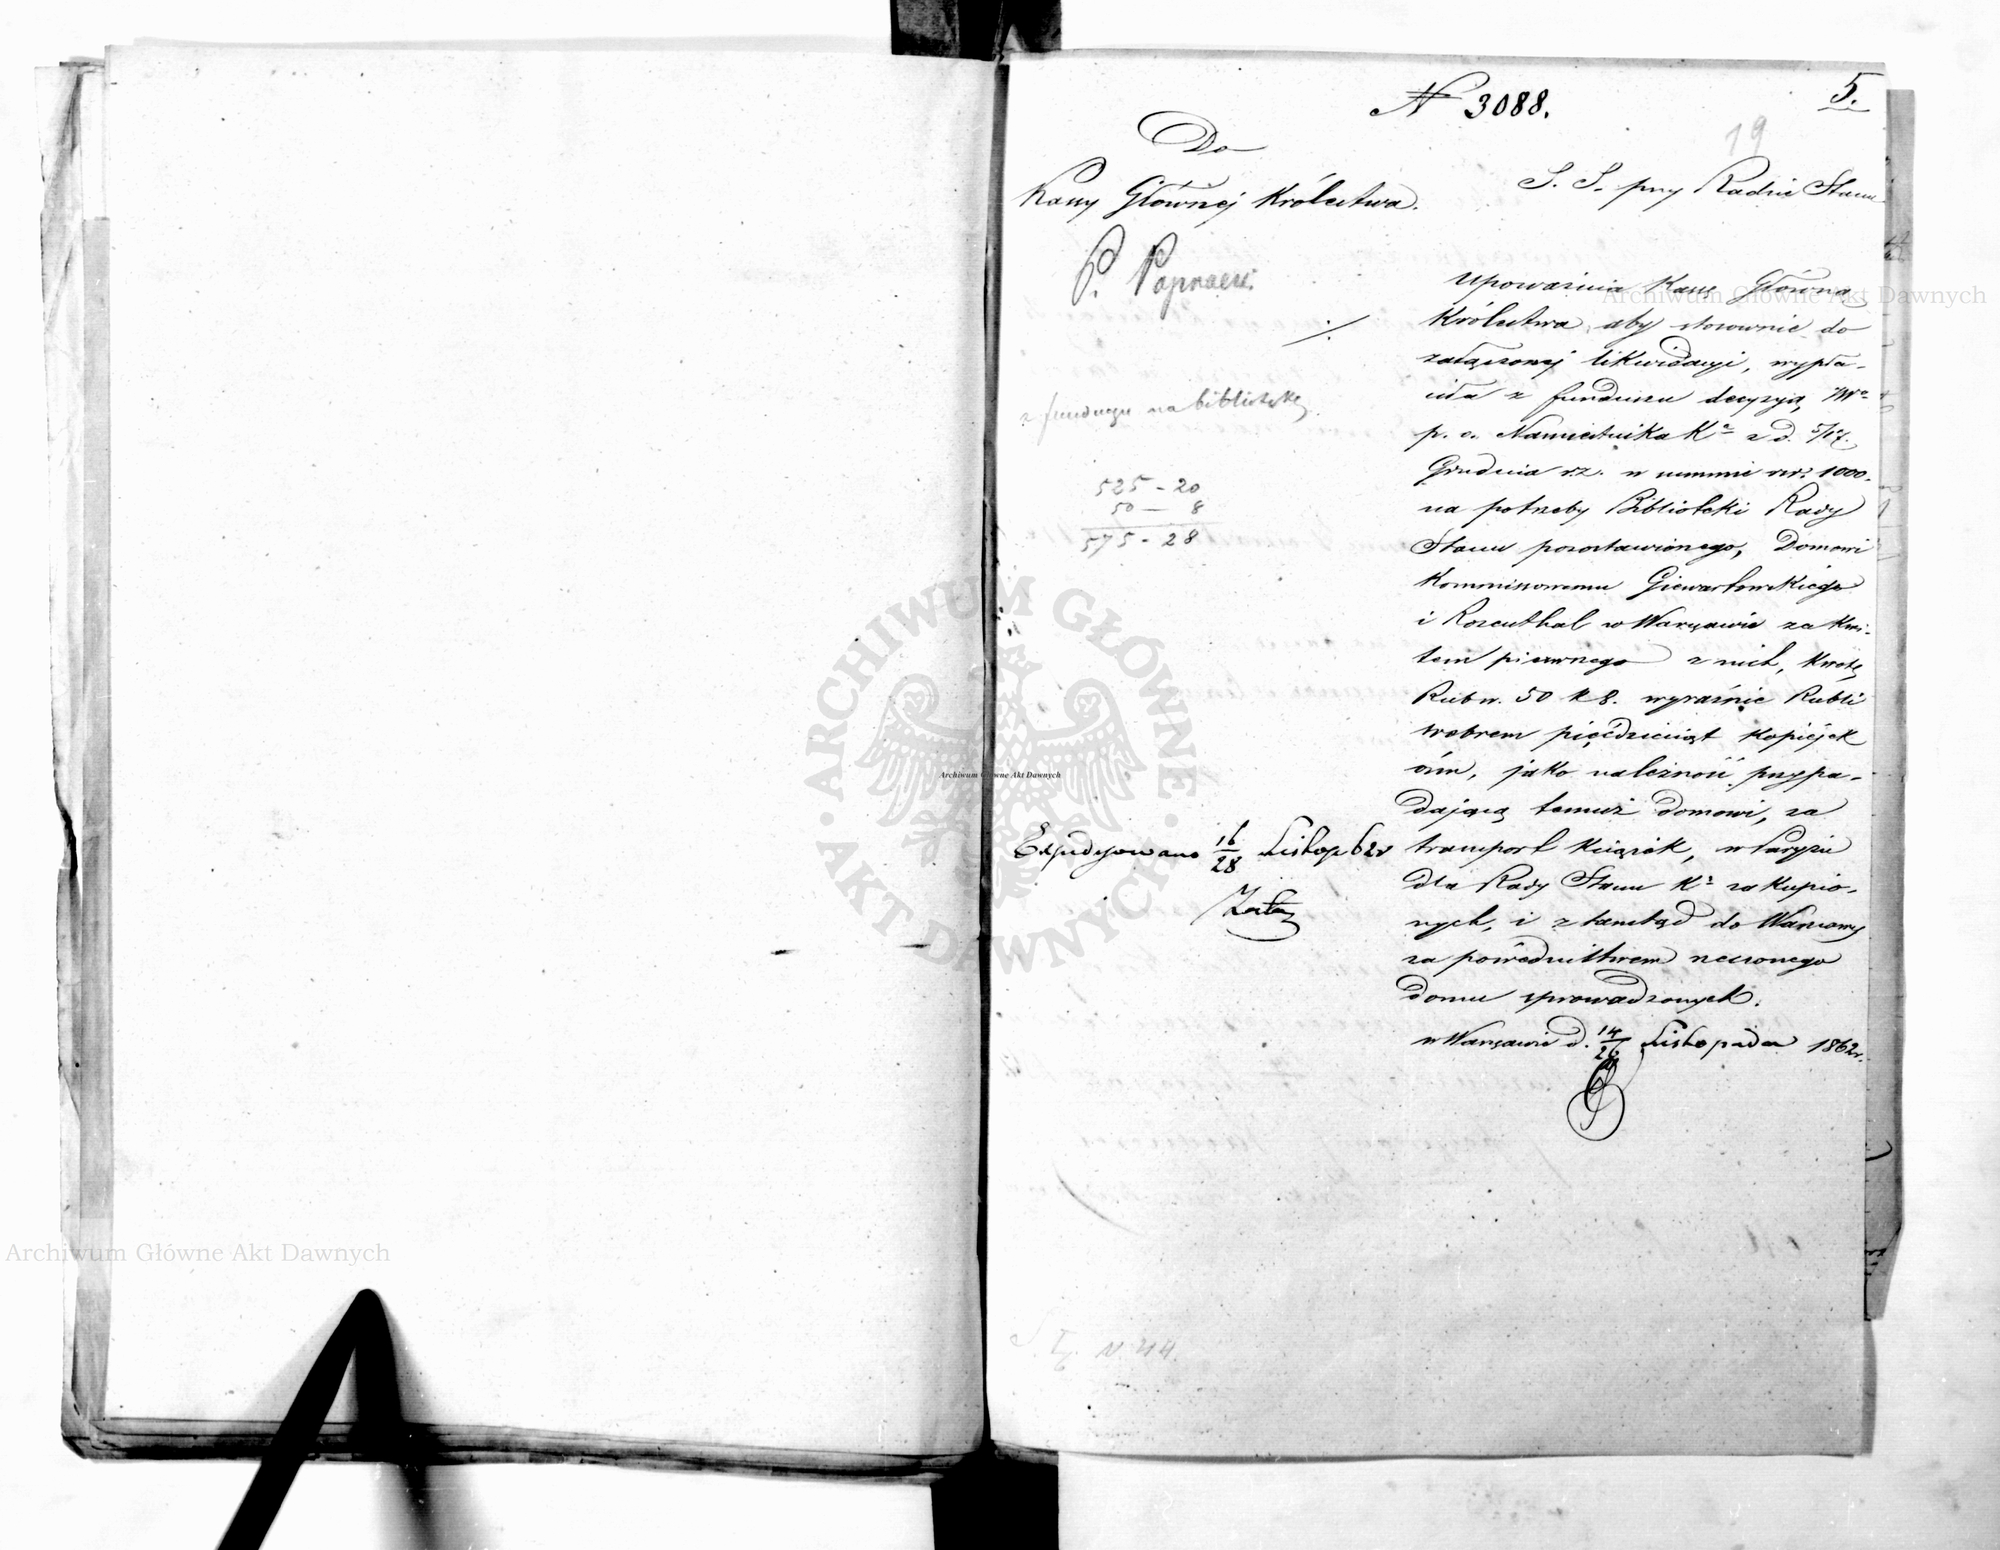 N 3088.
5.
19
Do
Kassy Głównej Królestwa.
S. S. przy Radzie Stanu
P. Paprocki.
Upoważnia Kassę Główną
Królestwa, aby stosownie do
załączonej likwidacyi, wypła-
ciła z funduszu decyzyą JWo
p. o. Namiestnika Ka z d. 5/17.
Grudnia r. z. w summie rsr. 1000.
na potrzeby Biblioteki Rady
Stanu pozostawionego, Domowi
Kommissowemu Giewartowskiego
i Rosenthal w Warszawie za kwi-
tem pierwszego z nich, kwotę
Rub sr. 50 k 8. wyraźnie Rubli
srebrem pięćdziesiąt kopiejek
ośm, jako należność przypa-
dającą temuż domowi, za
transport książek, w Paryżu
dla Rady Stanu Ka zakupio-
nych, i ztamtąd do Warszawy
za pośrednictwem rzeczonego
domu sprowadzonych.
w Warszawie d. 14/26 Listopada 1862r.
z funduszu na bibliotekę
525 - 20
50 — 8
575 - 28
Expedyowano 16/28 Listop 62r
N. 44.
Archiwum Główne Akt Dawnych
Archiwum Główne Akt Dawnych
Archiwum Główne Akt Dawnych
ARCHIWUM GŁÓWNE
AKT DAWNYCH